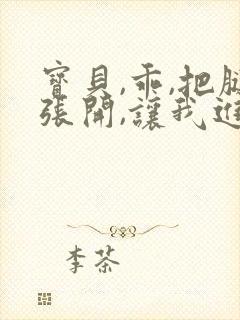 寶貝,乖,把
張開,讓我進
李茶